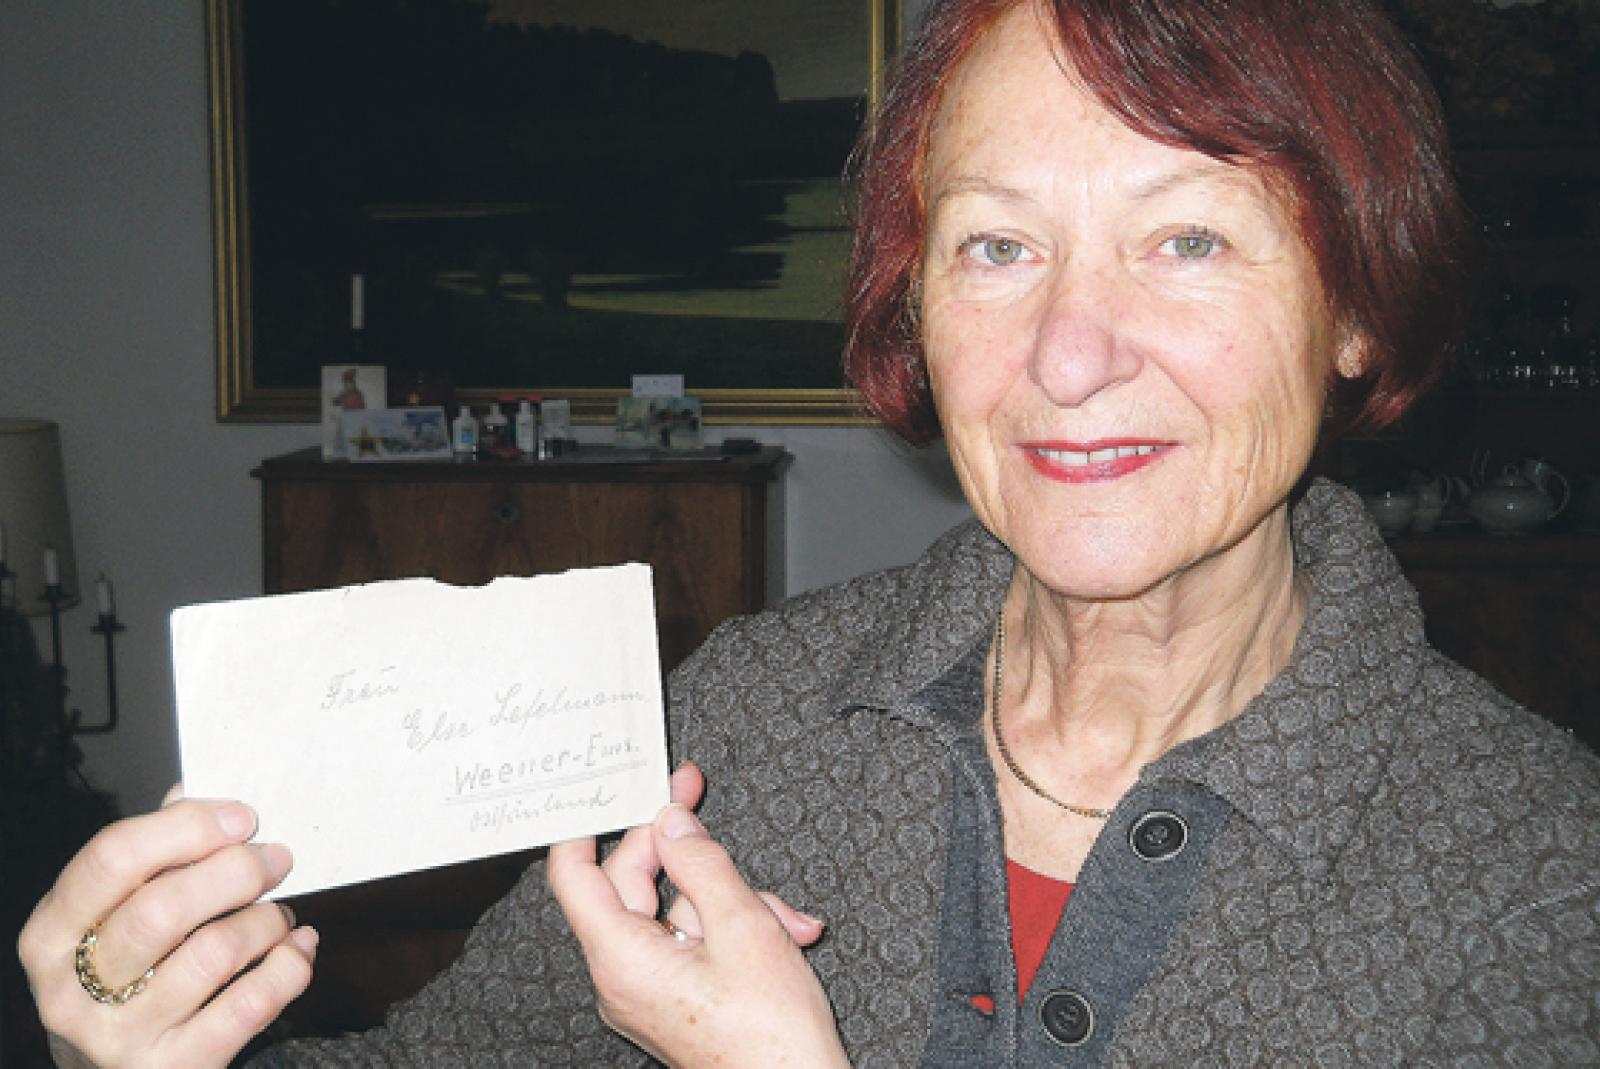 Frau
Else Lefelmann
Weener-Ems.
Ostfriesland